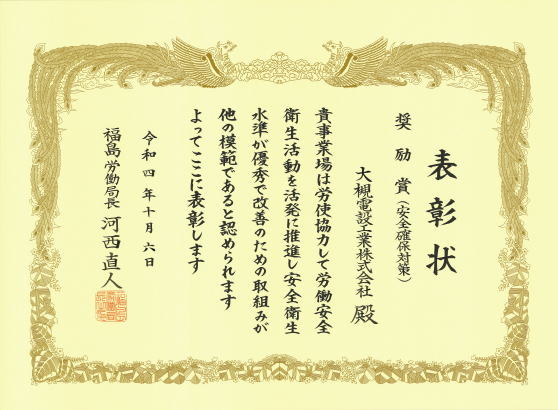 表彰状
奨励賞(安全確保対策)
大槻電設工業株式会社 殿
貴事業場は労使協力して労働安全
衛生活動を活発に推進し安全衛生
水準が優秀で改善のための取組みが
他の模範であると認められます
よってここに表彰します
令和四年十月六日
福島労働局長 河西直人